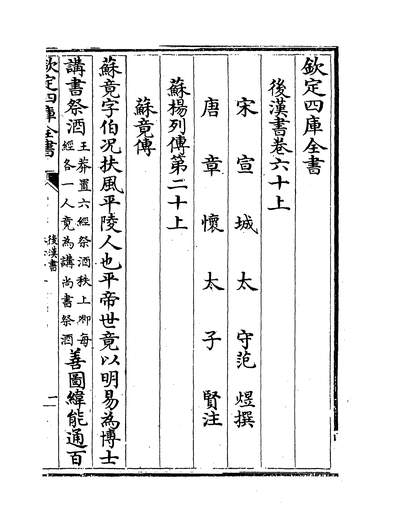 欽定四庫全書
後漢書卷六十上
宋宣城太守范煜撰
唐章懷太子賢注
蘇楊列傳第二十上
蘇竟傳
蘇竟字伯况扶風平陵人也平帝世竟以明易為博士
講書祭酒王莽置六經祭酒秩上卿每經各一人竟為講尚書祭酒善圖緯能通百
欽定四庫全書
後漢書